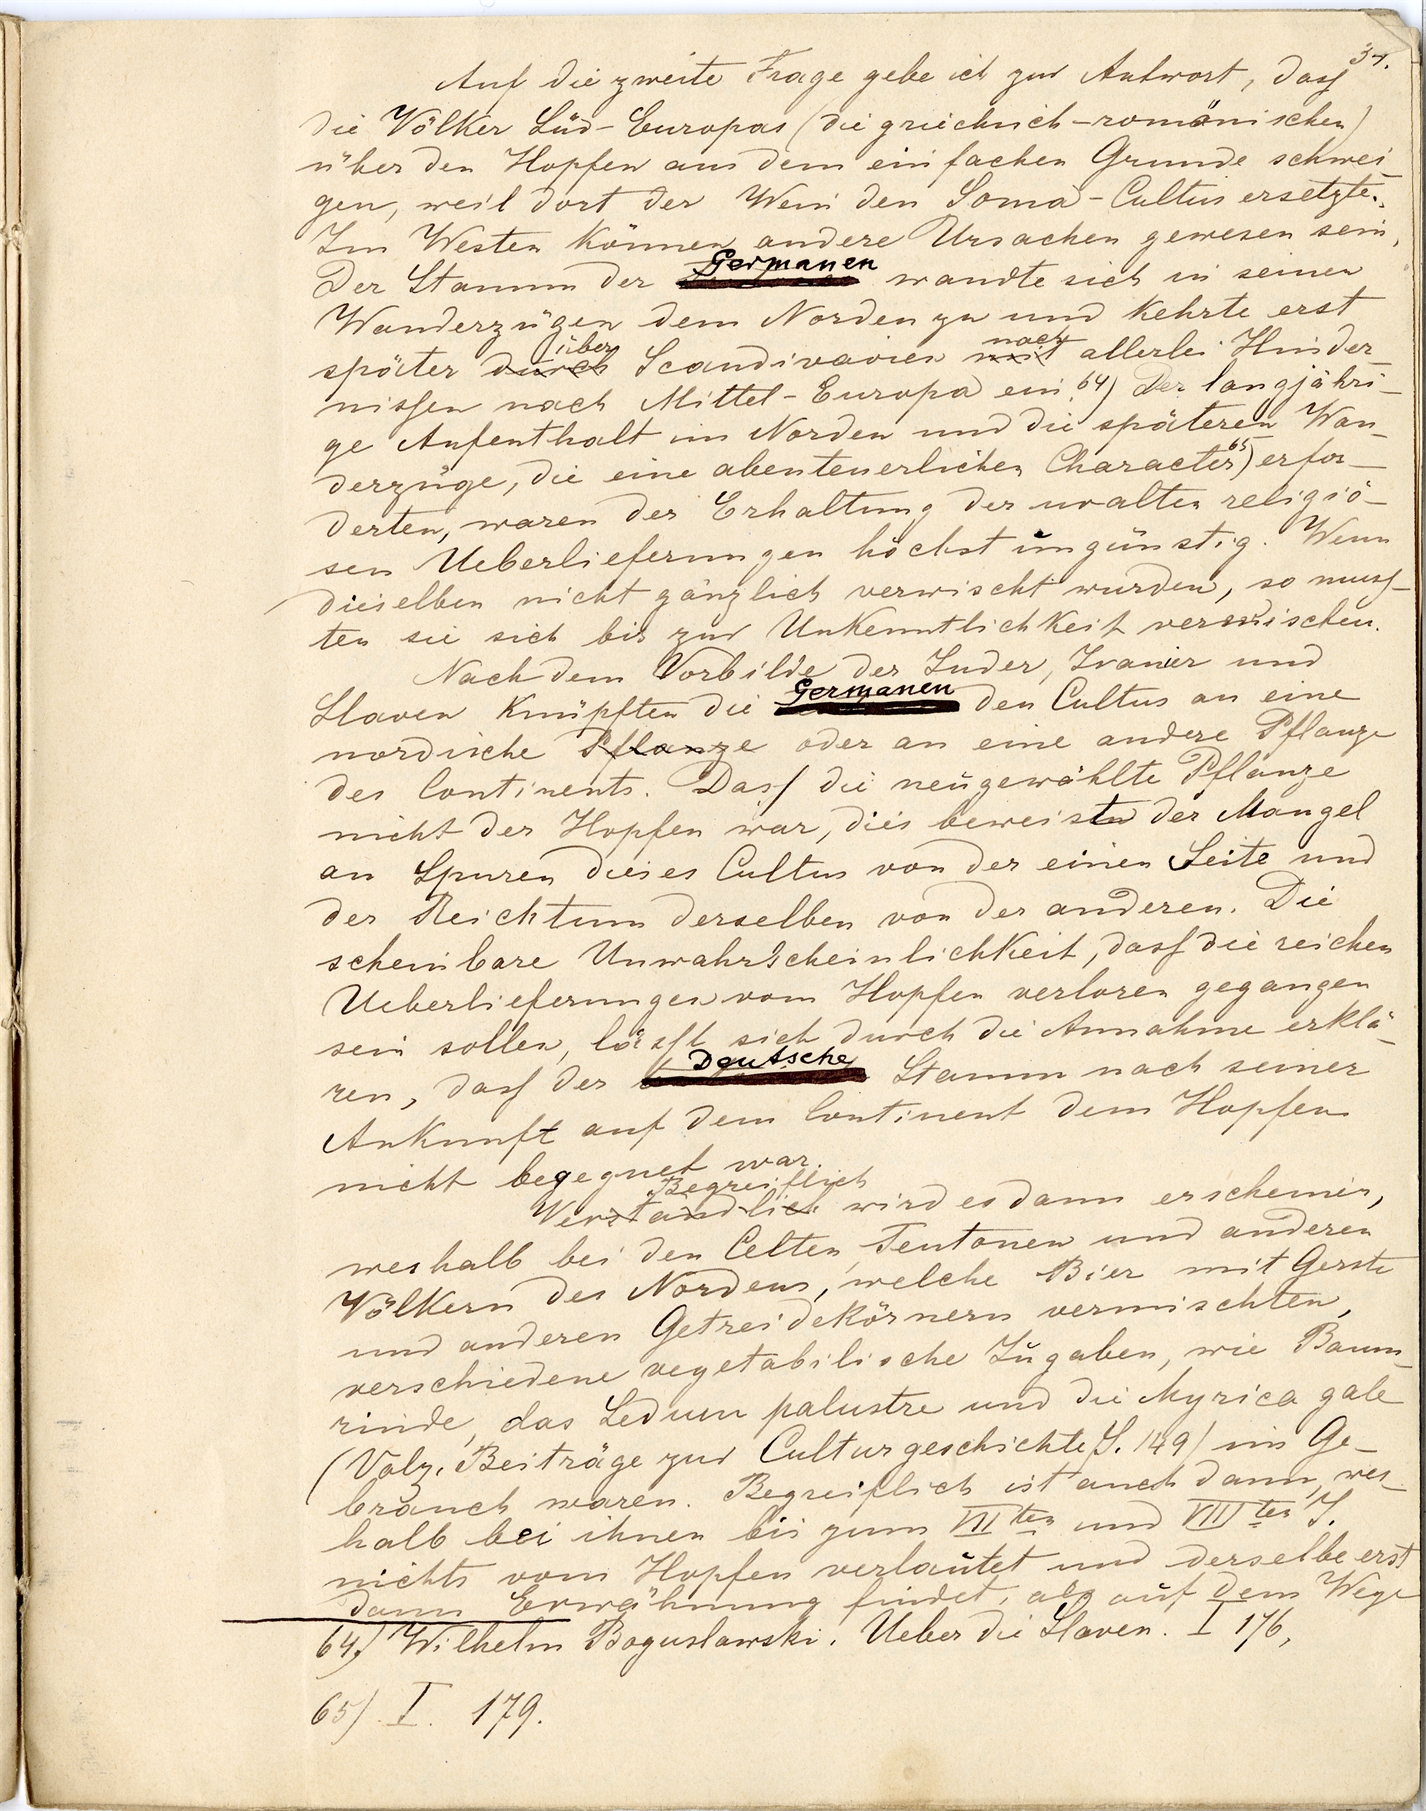 37.
Auf die zweite Frage gebe ich zur Antwort, dass
die Völker Süd-Europas (die griechisch-romänischen)
über den Hopfen aus dem einfachen Grunde schwei-
gen, weil dort der Wein den Soma-Cultus ersetzte.
Im Westen können andere Ursachen gewesen sein,
Germanen
Der Stamm der wandte sich in seinen
Wanderzügen dem Norden zu und kehrte erst
über nach
später durch Scandivavien mit allerlei Hinder-
nissen nach Mittel-Europa ein. 64) Der langjähri-
ge Aufenthalt im Norden und die späteren Wan-
derzüge, die eine abenteuerlichen Character 65) erfor-
derten, waren der Erhaltung der uralten religiö-
sen Ueberlieferungen höchst ungünstig. Wenn
dieselben nicht gänzlich verwischt wurden, so muss-
ten sie sich bis zur Unkenntlichkeit verwischen.
Nach dem Vorbilde der Inder, Iranier und
Germanen
Slaven knüpften die den Cultus an eine
nordische Pflanze oder an eine andere Pflanze
des Continents. Dass die neugewählte Pflanze
nicht der Hopfen war, dies beweist der Mangel
an Spuren dieses Cultus von der einen Seite und
der Reichtum derselben von der anderen. Die
scheinbare Unwahrscheinlichkeit, dass die reichen
Ueberlieferungen vom Hopfen verloren gegangen
sein sollen, lässt sich durch die Annahme erklä-
Deutsche
ren, dass der Stamm nach seiner
Ankunft auf dem Continent dem Hopfen
nicht begegnet war.
Begreiflich
Verständlich wird es dann erscheinen,
weshalb bei den Celten, Teutonen und anderen
Völkern des Nordens, welche Bier mit Gerste
und anderen Getreidekörnern vermischten,
verschiedene vegetabilische Zugaben, wie Baum-
rinde, das Ledum palustre und die Myrica gale
(Volz, Beiträge zur Culturgeschichte S. 149) im Ge-
brauch waren. Begreiflich ist auch dann, wes-
halb bei ihnen bis zum VII ten und VIII ten J.
nichts vom Hopfen verlautet und derselbe erst
dann Erwähnung findet, als auf dem Wege
64) Wilhelm Boguslawski. Ueber die Slaven. I 176,
65) I. 179.